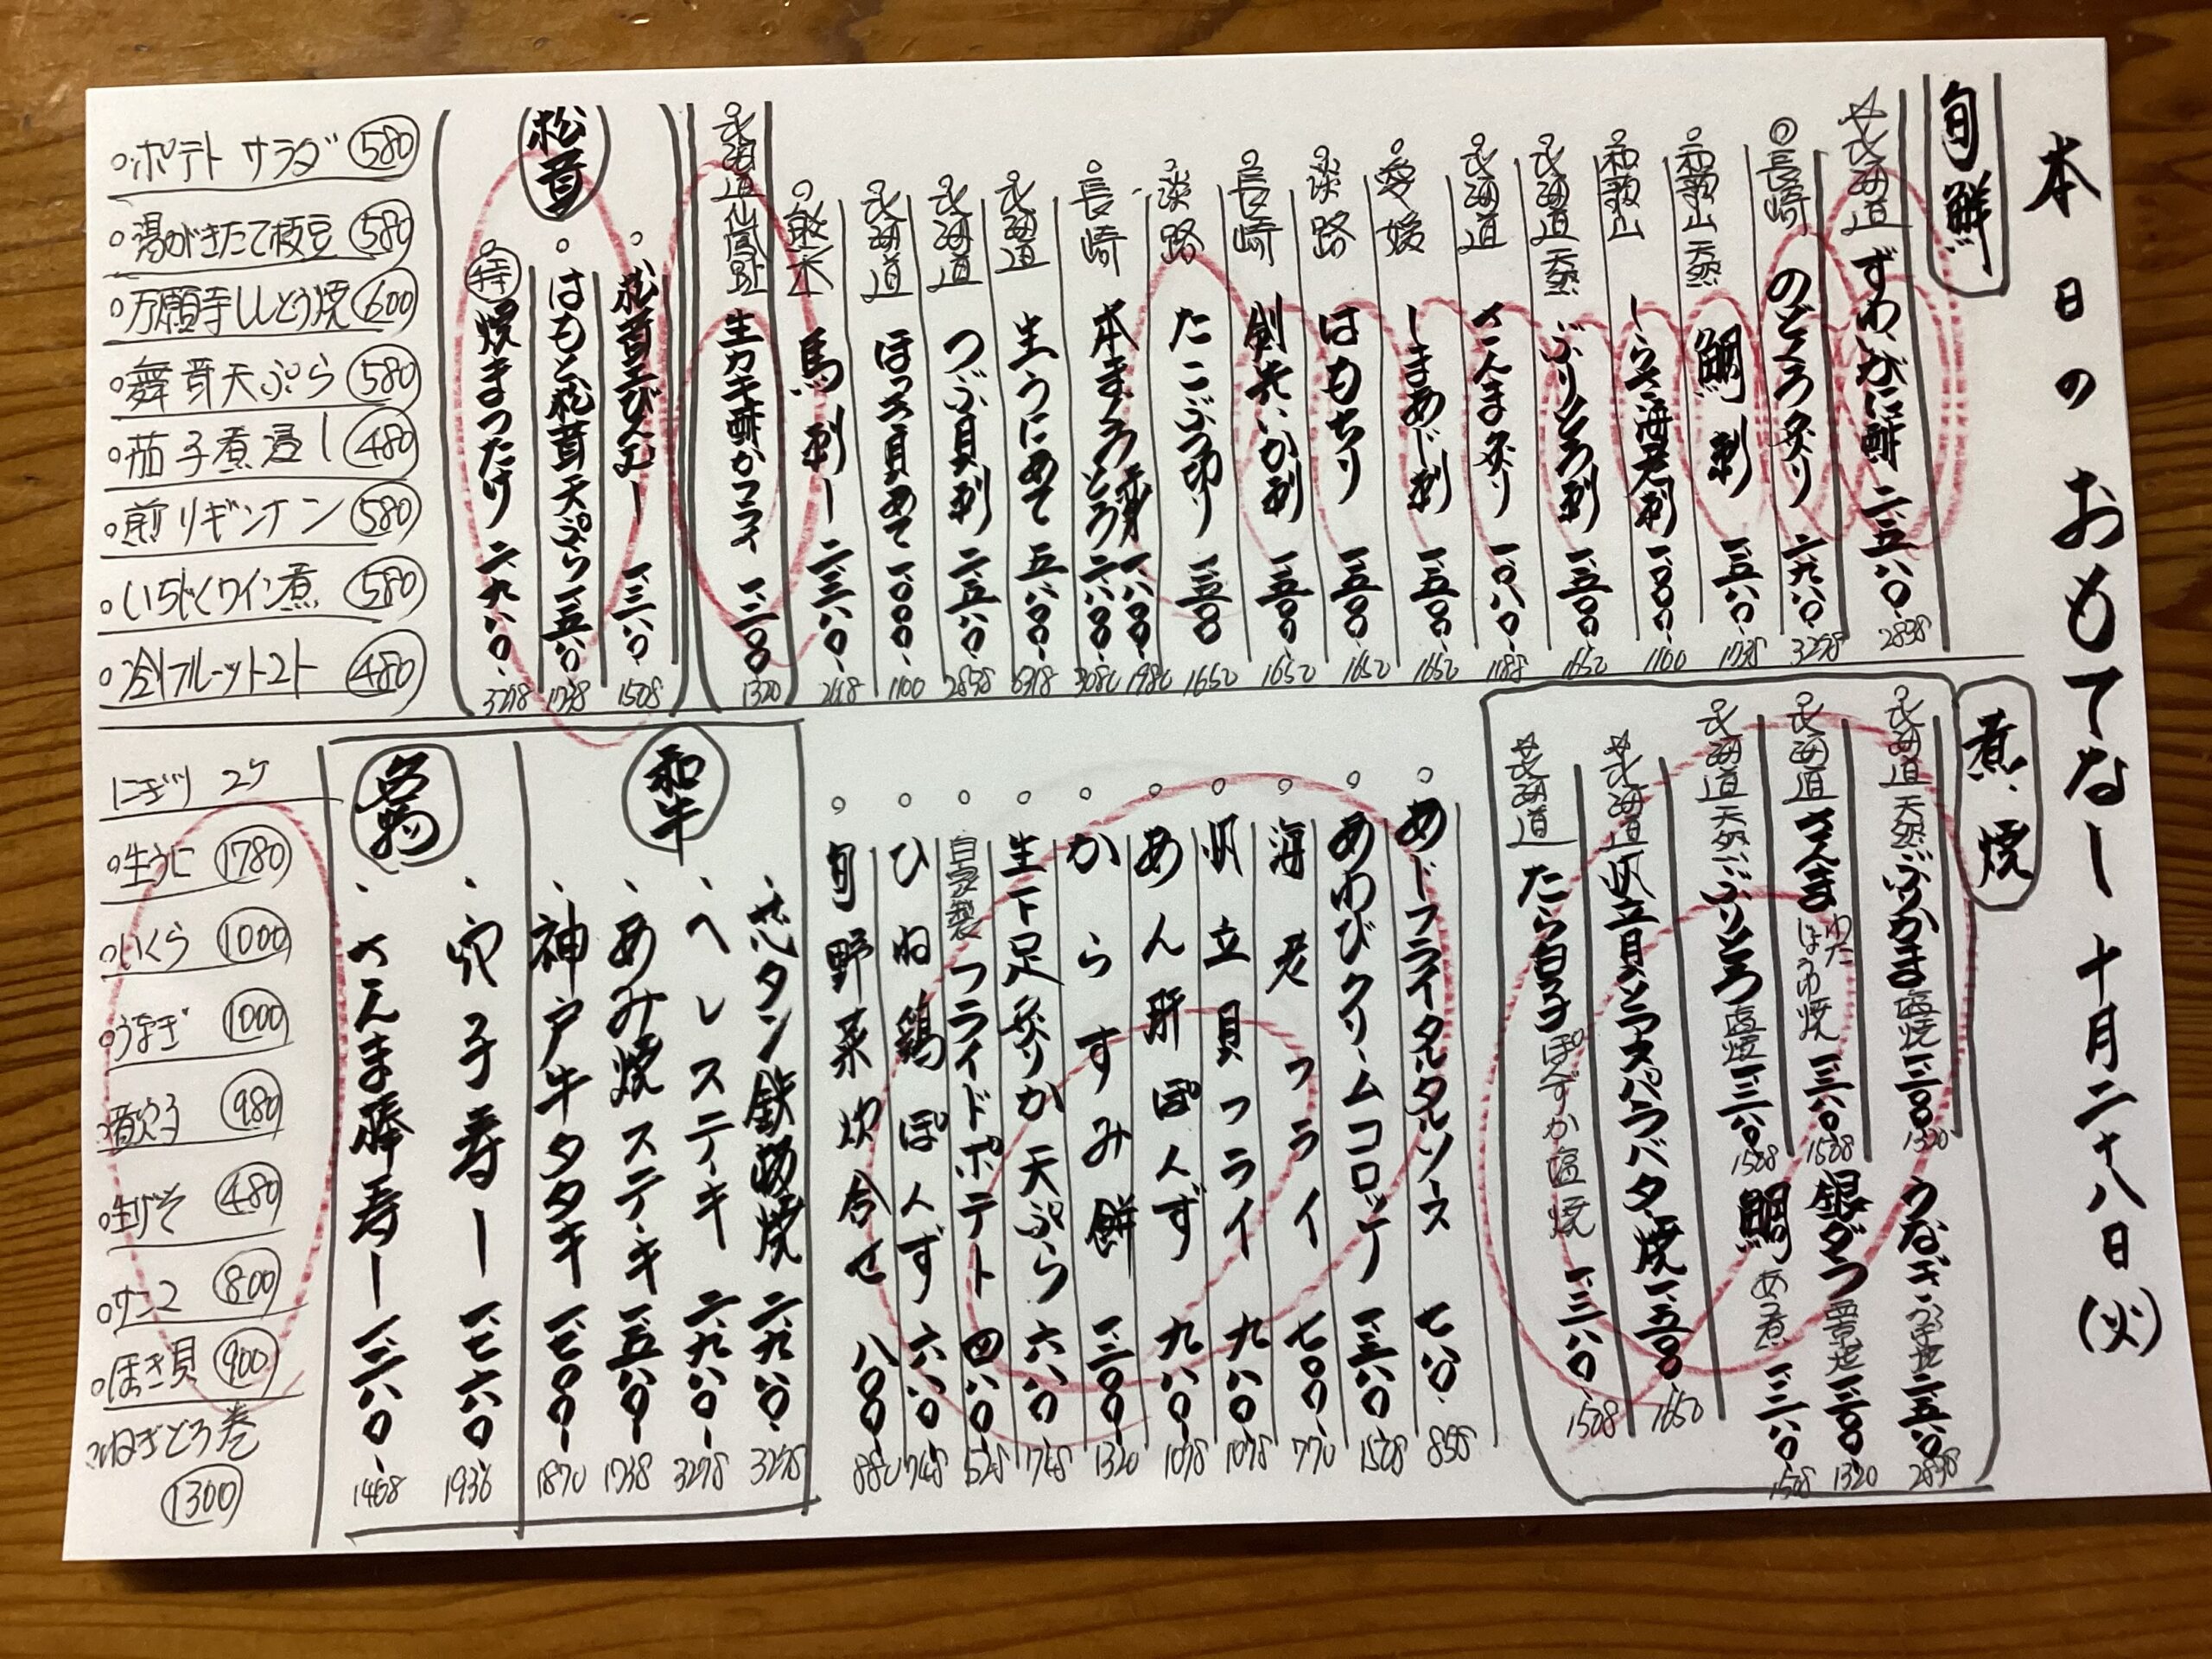 本日のおもてなし 十月二十八日(火)
旬鮮
☆北海道 ずわいがに酢 二、五八〇、 2838
◎長崎 のどぐろ炙り 二、九八〇、 3278
和歌山 天然 鯛刺 一、五八〇、 1738
和歌山 しらさ海老刺 一、000、 1100
北海道 天然 ぶりとろ刺 一、五〇〇、 1650
北海道 さんま炙り 一、〇八〇、 1188
愛媛 しまあじ刺 一、五〇〇、 1650
淡路 はもちり 一、五〇〇、 1650
長崎 剣先いか刺 一、五〇〇、 1650
淡路 たこぶつ切り 一、五〇〇 1650
長崎 本まぐろ 赤身 一、八〇〇、 1980
とろ 二、八〇〇、 3080
北海道 生うにあて 五、八〇〇、
北海道 つぶ貝刺 二、五八〇、 2838
北海道 ほっき貝あて 一、000、 1100
熊本 馬刺し 二、三八〇、 2618
北海道 仙鳳趾 生カキ酢かフライ 一、二〇〇 1320
松茸
松茸土びんむし 一、三八〇、 1508
はもと松茸天ぷら 一、五八〇、 1738
特 焼まつたけ 二、九八〇、 3278
ポテトサラダ 580
湯がきたて枝豆 580
万願寺ししとう焼 600
舞茸天ぷら 580
茄子煮浸し 480
煎りギンナン 580
いちじくワイン煮 580
冷フルーツトマト 480
煮・焼
北海道 天然 ぶりかま 塩焼 一、二〇〇、 1320
うなぎ 二、五八〇、 2838
北海道 さんま わた ほうば焼 一、三八〇、 1508
銀ダラ 一、二〇〇、 1320
北海道 天然 ぶりとろ 塩焼 一、三八〇、 1508
鯛 あら煮 一、三八〇、 1508
☆北海道 帆立貝とアスパラバター焼 一、五〇〇、 1650
☆北海道 たら白子 ぽんずか塩焼 一、三八〇、 1508
あじフライタルタルソース 七八〇、 858
あわびクリームコロッケ 一、三八〇、 1508
海老フライ 七〇〇、 770
帆立貝フライ 九八〇、 1078
あん肝ぽんず 九八〇、 1078
からすみ餅 一、二〇〇、 1320
生下足炙りか天ぷら 六八〇、 748
自家製 フライドポテト 四八〇、 528
ひね鶏ぽんず 六八〇、 748
旬野菜炊合せ 八〇〇、 880
和牛
芯タン鉄板焼 二、九八〇、 3278
ヘレステーキ 二、九八〇、 3278
あみ焼ステーキ 一、五八〇、 1738
神戸牛タタキ 一、七〇〇、 1870
名物
穴子寿し 一、七六〇、 1936
さんま棒寿し 一、二八〇、 1408
にぎり 2ケ
生うに 1780
いくら 1000
うなぎ 1000
980
生げそ 480
サンマ 800
ほっき貝 900
ねぎとろ巻
1300